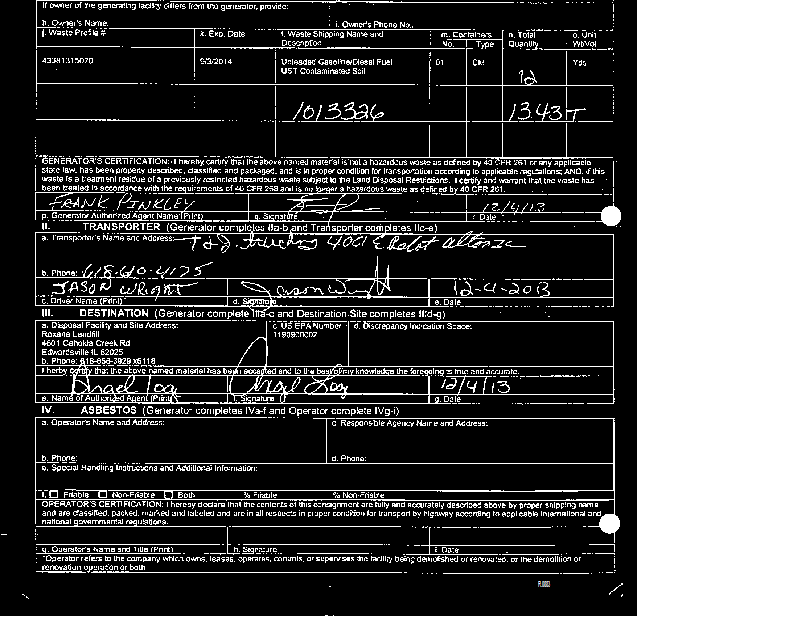 If owner of the generating facility differs from the generator, provide:
h. Owner's Name: i. Owner's Phone No.:
j. Waste Profile # k. Exp. Date l. Waste Shipping Name and Description m. Containers No. Type n. Total Quantity o. Unit Wt/Vol
43381315070 9/3/2014 Unleaded Gasoline/Diesel Fuel UST Contaminated Soil 01 CM 12 Yds
1013326 13.43T
GENERATOR'S CERTIFICATION: I hereby certify that the above named material is not a hazardous waste as defined by 40 CFR 261 or any applicable
state law, has been properly described, classified and packaged, and is in proper condition for transportation according to applicable regulations; AND, if this
waste is a treatment residue of a previously restricted hazardous waste subject to the Land Disposal Restrictions. I certify and warrant that the waste has
been treated in accordance with the requirements of 40 CFR 268 and is no longer a hazardous waste as defined by 40 CFR 261.
FRANK PINKLEY 12/4/13
p. Generator Authorized Agent Name (Print) q. Signature r. Date
II. TRANSPORTER (Generator completes IIa-b and Transporter completes IIc-e)
a. Transporter's Name and Address:
b. Phone: 618-610-4175
JASON WRIGHT Jason Wright 12-4-2013
c. Driver Name (Print) d. Signature e. Date
III. DESTINATION (Generator complete IIIa-c and Destination Site completes IIId-g)
a. Disposal Facility and Site Address: c. US EPA Number d. Discrepancy Indication Space:
Roxana Landfill 1190900002
4601 Cahokia Creek Rd
Edwardsville IL 62025
b. Phone: 618-656-3929 x6118
I herby certify that the above named material has been accepted and to the best of my knowledge the foregoing is true and accurate.
12/4/13
e. Name of Authorized Agent (Print) f. Signature g. Date
IV. ASBESTOS (Generator completes IVa-f and Operator complete IVg-i)
a. Operator's Name and Address: c. Responsible Agency Name and Address:
b. Phone: d. Phone:
e. Special Handling Instructions and Additional Information:
f. Friable Non-Friable Both % Friable % Non-Friable
OPERATOR'S CERTIFICATION: I hereby declare that the contents of this consignment are fully and accurately described above by proper shipping name
and are classified, packed, marked and labeled and are in all respects in proper condition for transport by highway according to applicable international and
national governmental regulations.
g. Operator's Name and Title (Print) h. Signature i. Date
*Operator refers to the company which owns, leases, operates, controls, or supervises the facility being demolished or renovated, or the demolition or
renovation operation or both